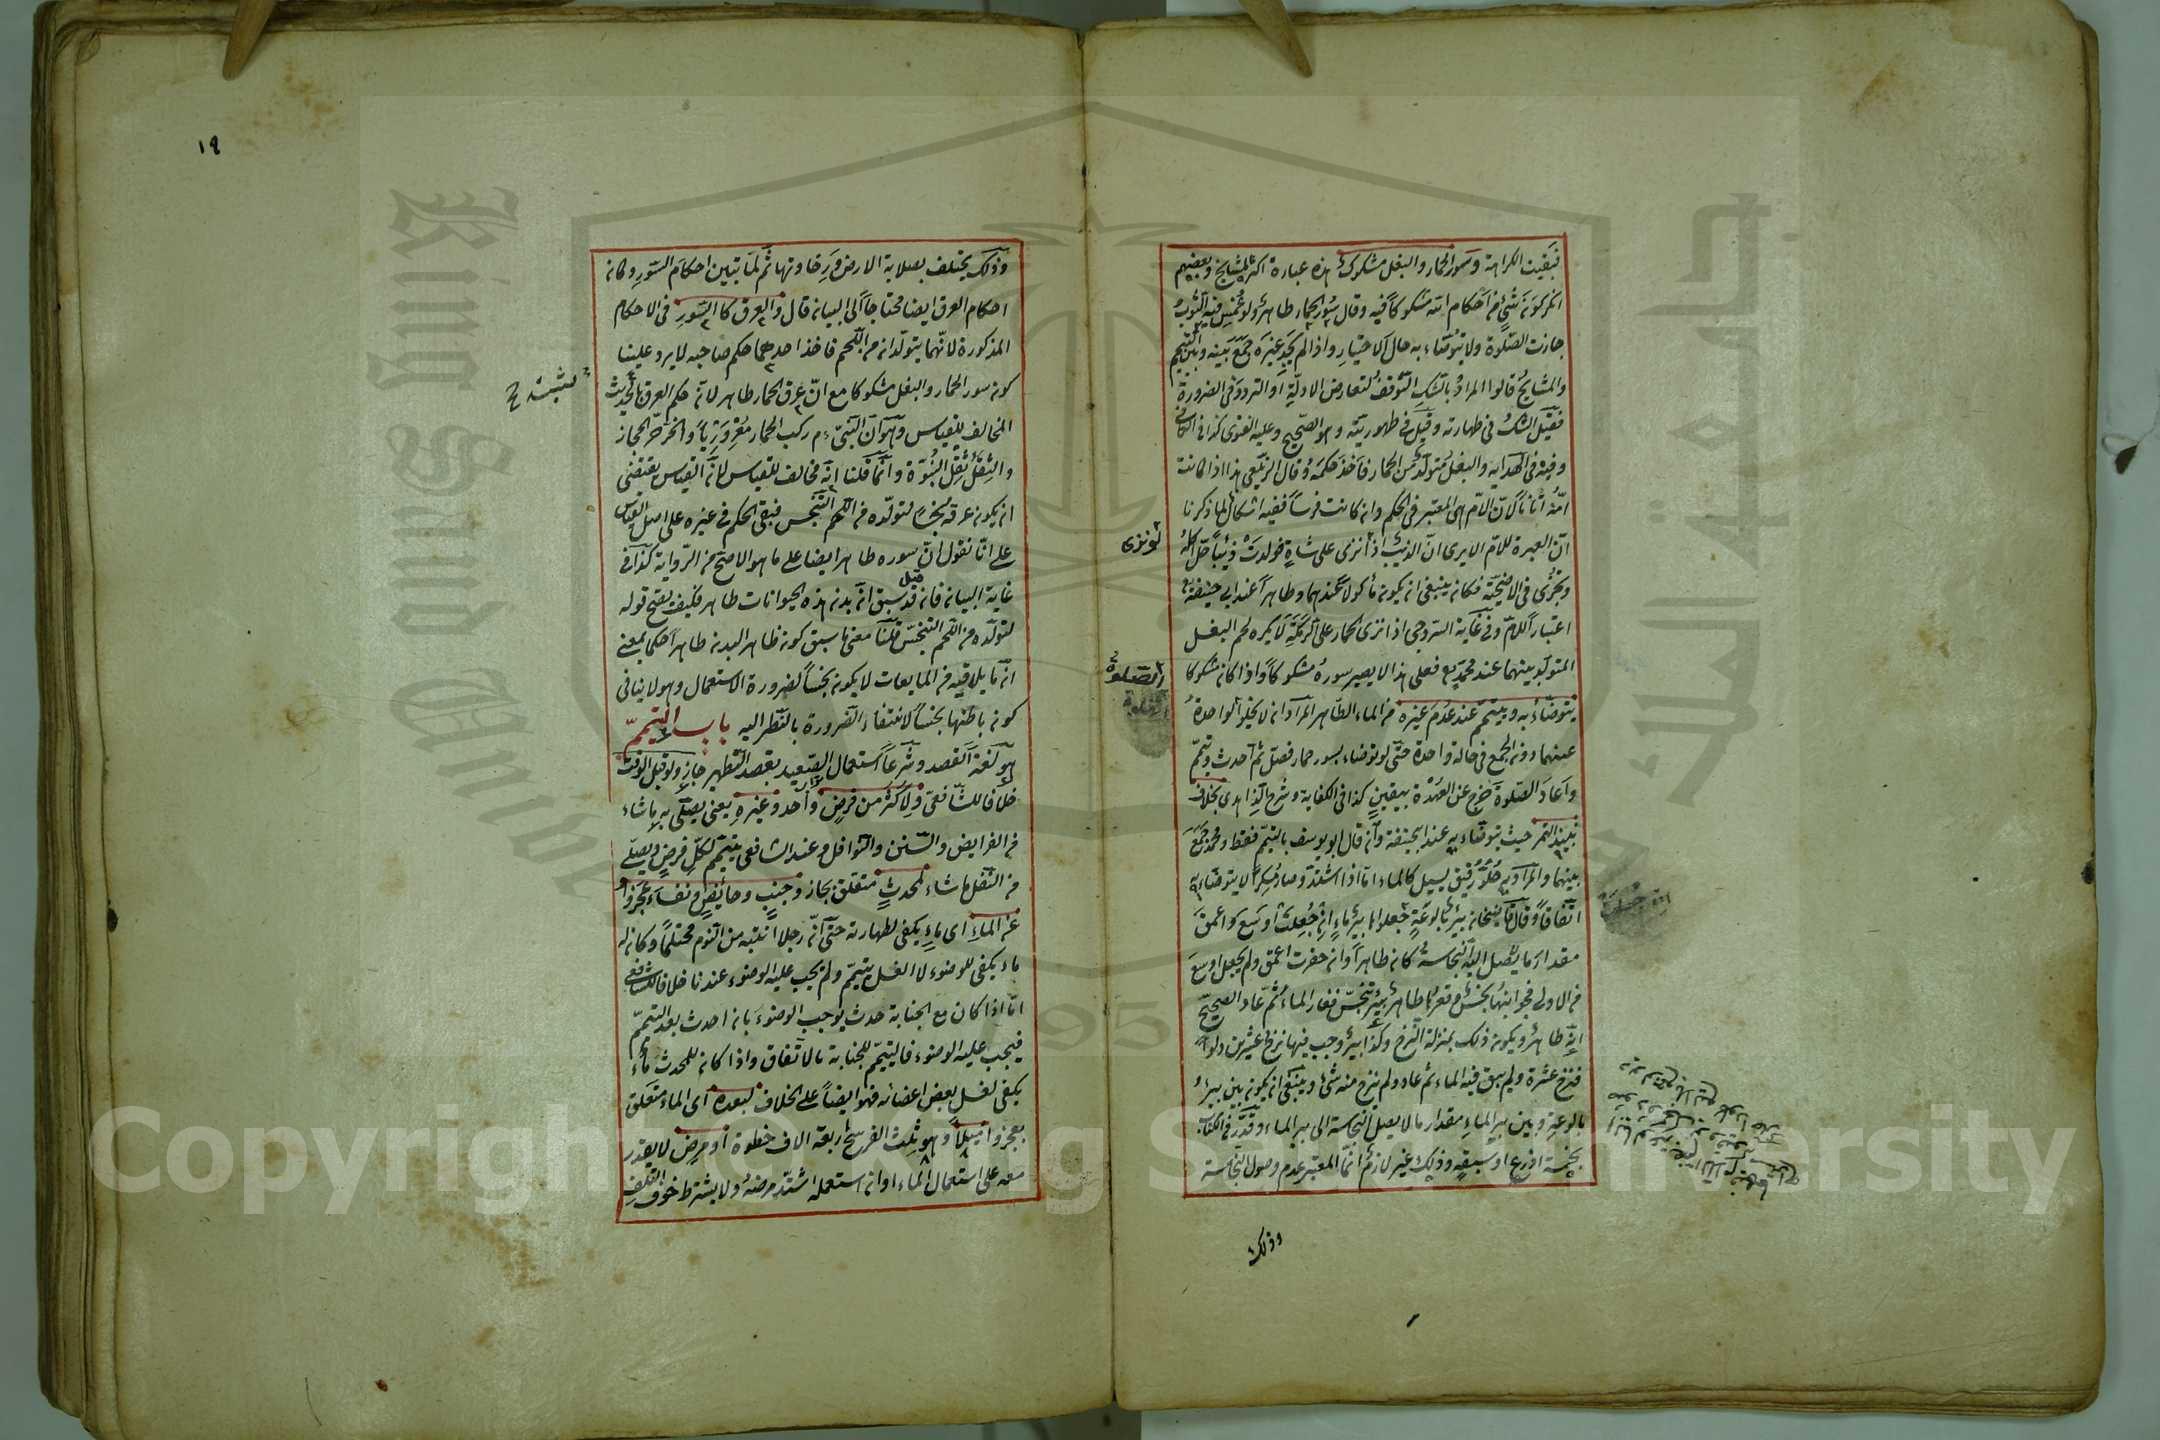 فبقيت الكراهة وسور الحمار والبغل مشكوك هذه عبارة اكثر المشايخ وبعضهم
انكر كون شئ من احكام الله مشكوكا فيه وقال سؤر الحمار طاهر ولو غمس فيه الثوب
جازت الصلوة ولا يتوضاء به حال الاختيار واذا لم يجد غيره جمع بينه وبين التيمم
والمشايخ قالوا المراد بالشك التوقف لتعارض الادلة او التردد في الضرورة
فقيل الشك في طهارته وقيل في طهوريته وهو الصحيح وعليه الفتوى كذا في الكافي
وفيه في الهداية والبغل متولد من الحمار فاخذ حكمه وقال الزيلعي هذا اذا كانت
امه اتانا لان الام هي المعتبر في الحكم وان كانت فرسا ففيه اشكال لما ذكرنا
ان العبرة للام الا يرى ان الذئب اذا نزى على شاة فولدت ذئبا حل اكله
ويجزى في الاضحية فكان ينبغي ان يكون ماكولا عندهما وطاهرا عند ابي حنيفة
اعتبارا للام وفي غاية السروجي اذا نزى الحمار على الرمكة لا يكره لحم البغل
المتولد بينهما عند محمد فعلى هذا لا يصير سوره مشكوكا واذا كان مشكوكا
يتوضاء به ويتيمم عند عدم غيره من الماء الطاهر المراد ان لا يخلو الواحدة
عنهما دون الجمع في حالة واحدة حتى لو توضاء بسور حمار فصل ثم احدث وتيمم
واعاد الصلوة خرج عن العهدة بيقين كذا في الكفاية وشرح الزاهدي بخلاف
نبيذ التمر حيث يتوضاء به عند ابيحنيفة وان قال ابو يوسف بالتيمم فقط ومحمد جمع
بينهما والمراد به حلو رقيق يسيل كالماء اما اذا اشتد وصار مسكرا لا يتوضاء به
اتفاقا وقال قاضيخان بئر بالوعة جعلوها بئر ماء ان جعلت اوسع واعمق
مقدار ما يصل اليه النجاسة كان طاهرا وان حفرت اعمق ولم يجعل اوسع
من الاولى فجوانبها نجس وقعرها طاهر بئر تنجس فغار الماء ثم عاد الصحيح
انه طاهر ويكون ذلك بمنزلة النزح وكذا بئر وجب فيها نزح عشرين دلوا
فنزح عشرة ولم يبق فيه الماء ثم عاد ولم ينزح منه شئ وينبغي ان يكون بين بئر
بالوعة وبين بير الماء مقدار ما لا يصل النجاسة الى بير الماء وقدر في الكتاب
بخمسة اذرع او سبعة وذلك غير لازم انما المعتبر عدم وصول النجاسة
وذلك
لو نزى
الصلوة
١٩
وذلك يختلف بصلابة الارض ورخاوتها ثم لما تبين احكام السؤر وكانه
احكام العرق ايضا محتاجا الى البيان قال والعرق كالسؤر في الاحكام
المذكورة لانهما يتولدان من اللحم فاخذ احدهما حكم صاحبه لا يرد علينا
كون سور الحمار والبغل مشكوكا مع ان عرق الحمار طاهر لان حكم العرق بالحديث
المخالف للقياس وهو ان النبي ءم ركب الحمار معروريا والحر حر الحجاز
والثقل ثقل النبوة وانما قلنا انه مخالف للقياس لان القياس يقتضي
ان يكون عرقه نجسا لتولده من اللحم النجس فبقى الحكم في غيره على اصل القياس
على انا نقول ان سوره طاهر ايضا على ما هو الاصح من الرواية كذا في
غاية البيان فان قيل قد سبق ان بدن هذه الحيوانات طاهر فكيف يصح قوله
لتولده من اللحم النجس قلنا معنى ما سبق كون ظاهر البدن طاهرا حكما بمعنى
ان ما يلاقيه من المايعات لا يكون نجسا لضرورة الاستعمال وهو لا ينافي
كون باطنها نجسا لانتفاء الضرورة بالنظر اليه باب التيمم
هو لغة القصد وشرعا استعمال الصعيد بقصد التطهير جاز ولو قبل الوقت
خلافا للشافعي ولاكثر من فرض واحد وغيره يعنى يصلى به ما شاء
من الفرايض والسنن والنوافل وعند الشافعي يتيمم لكل فرض ويصلي
من النفل ما شاء لمحدث متعلق بجاز وجنب وحائض ونفساء عجزوا
عن الماء اى ماء يكفى لطهارته حتى ان رجلا انتبه من النوم محتلما وكان له
ماء يكفي للوضوء لا الغسل يتيمم ولم يجب عليه الوضوء عندنا خلافا للشافعي
اما اذا كان مع الجنابة حدث يوجب الوضوء بان احدث بعد التيمم
فيجب عليه الوضوء فالتيمم للجنابة بالاتفاق واذا كان للمحدث ماء
يكفي لغسل بعض اعضائه فهو ايضا على الخلاف لبعده اى الماء متعلق
بعجزوا ميلا وهو ثلث الفرسخ اربعة الاف خطوة او مرض لا يقدر
معه على استعمال الماء او ان استعمله اشتد مرضه ولا يشترط خوف التلف
Copyright © King Saud University
King Saud University
جامعة الملك سعود
1957